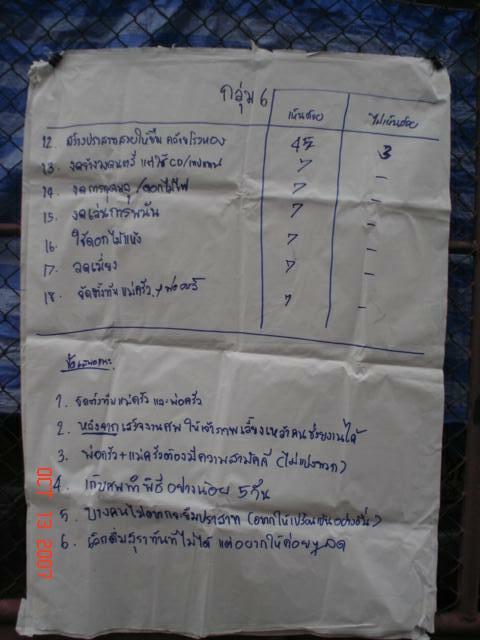 กลุ่ม 6
เห็นด้วย ไม่เห็นด้วย
12. สร้างปราสาทสวยใบขึ้น 45 3
13. งดจ้างวงดนตรี แต่ใช้ CD/เทปแทน 7 –
14. งดการจุดพลุ/ดอกไม้ไฟ 7 –
15. งดเล่นการพนัน 7 –
16. ใช้ดอกไม้แห้ง 7 –
17. งดเมี่ยง 7 –
18. จัดตั้งทีมแม่ครัว, พ่อครัว 7 –
ข้อเสนอแนะ
1. จัดตั้งทีมแม่ครัว และพ่อครัว
2. หลังจากเสร็จงานศพ ให้เจ้าภาพเลี้ยงเหล้าคนช่วยงานได้
3. พ่อครัว+แม่ครัวต้องมีความสามัคคี (ไม่แบ่งพวก)
4. เก็บศพทำพิธีอย่างน้อย 5 คืน
5. บางคนไม่อยากจะยืมปราสาท (อยากให้เปลี่ยนเป็นอย่างอื่น)
6. เลิกดื่มสุราทันทีไม่ได้ แต่อยากให้ค่อยๆ ลด
OCT 13 2007